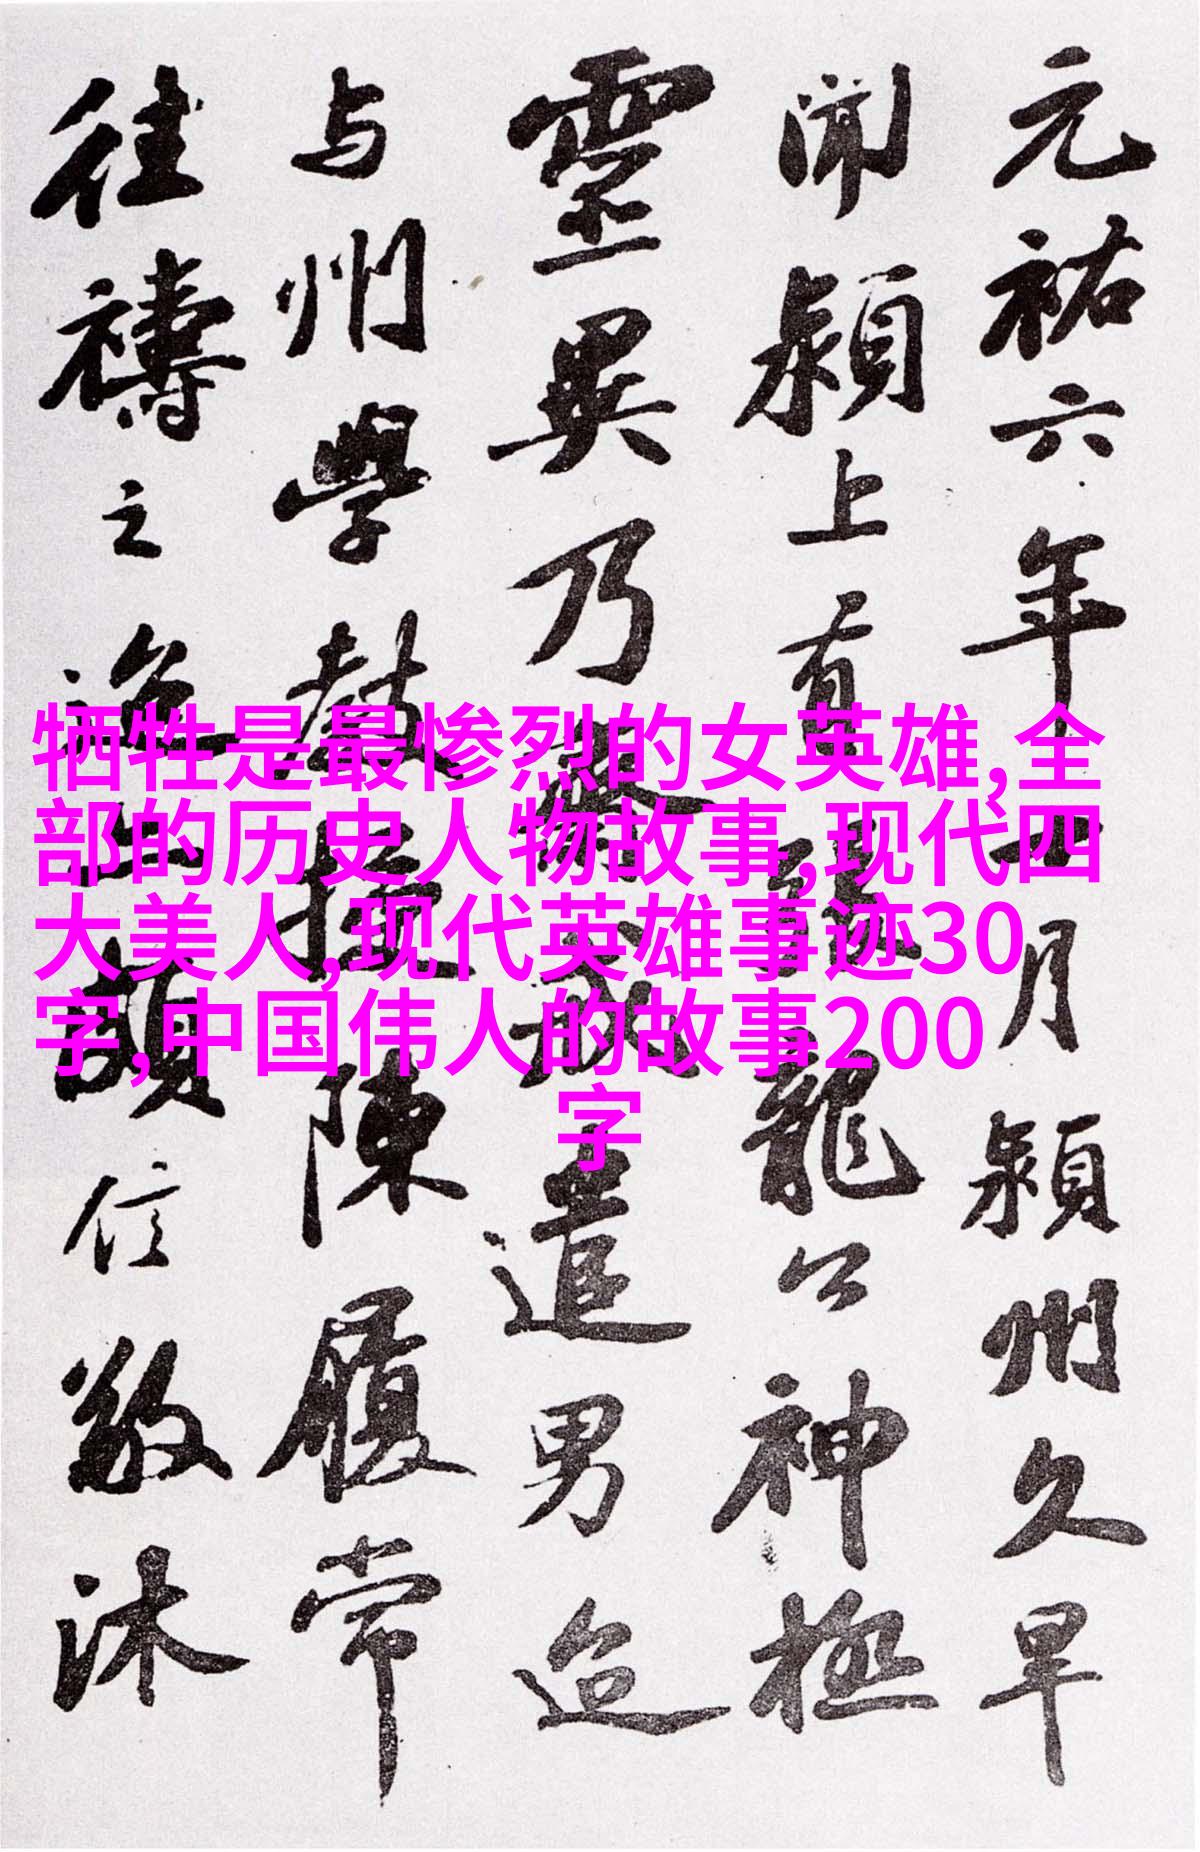 元祐六年十月潁州久旱
聞潁上有張龍公神極
靈異乃齋戒遣男迨
与州學教授陳履常
往禱之迨亦頗信敬沐
牺牲是最惨烈的女英雄,全
部的历史人物故事,现代四
大美人,现代英雄事迹30
字,中国伟人的故事200
字